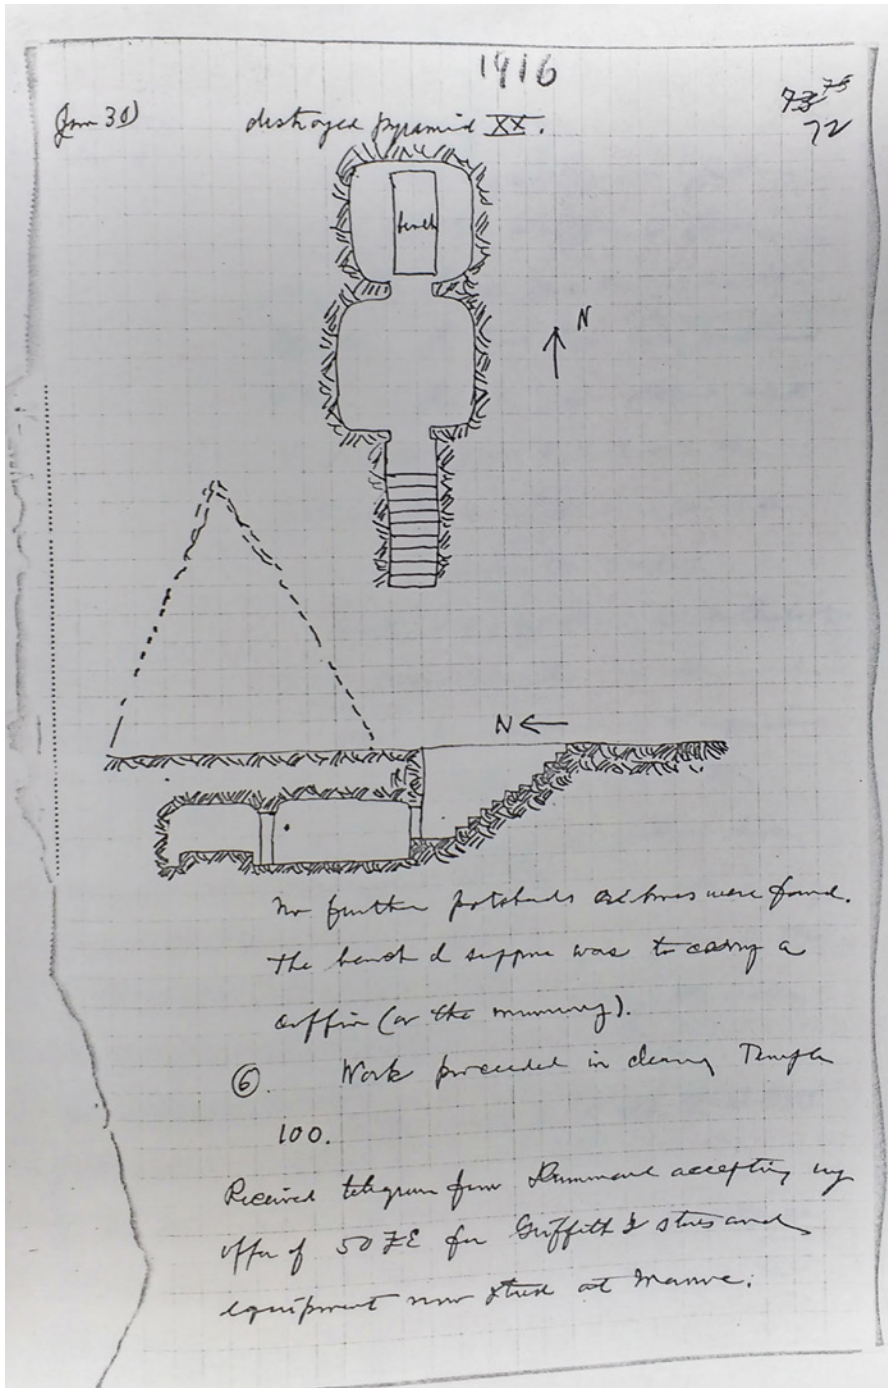 1916
(Jan 30)
destroyed pyramid XX.
73 75
72
bench
N
N
No further potsherds or bones were found.
The bench I suppose was to carry a
coffin (or the mummy).
⑥. Work proceeded in clearing Temple
100.
Received telegram from Drummond accepting my
offer of 50 £E for Griffith's stores and
equipment now stored at Marawe.